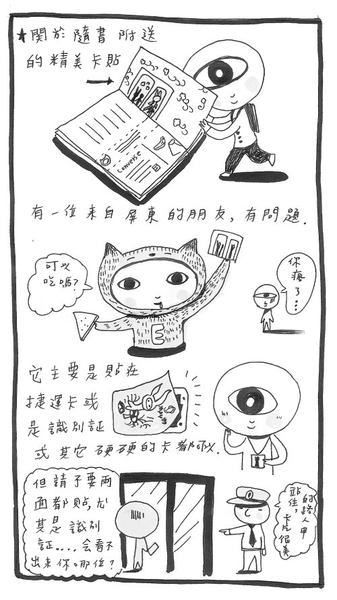 ★關於隨書附送
的精美卡貼
converse
有一位來自屏東的朋友,有問題.
可以
吃嗎?
你瘋了...
E
它主要是貼在
捷運卡或
是識別証
或其它硬硬的卡都可以.
但請不要兩
面都貼,尤
其是識別
証....会看不
出來你.哪位?
站住,卡片很美
的路人甲